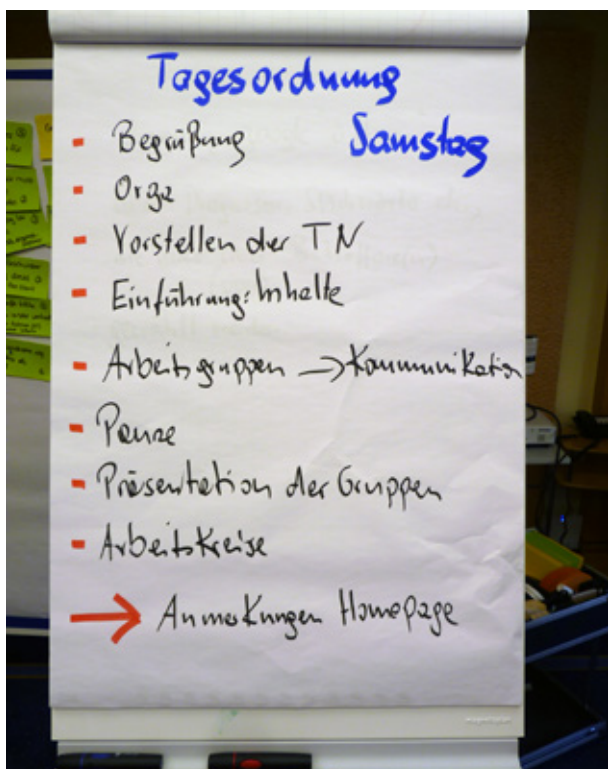 Tagesordnung
Samstag
- Begrüßung
- Orga
- Vorstellen der TN
- Einführung: Inhalte
- Arbeitsgruppen → Kommunikation
- Pause
- Präsentation der Gruppen
- Arbeitskreise
→ Anmerkungen Homepage